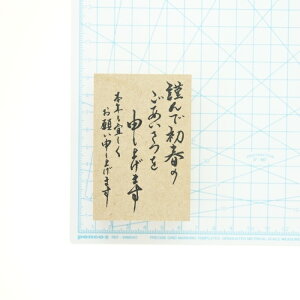 謹んで初春の
ごあいさつを
申し上げます
本年も宜しく
お願い申し上げます